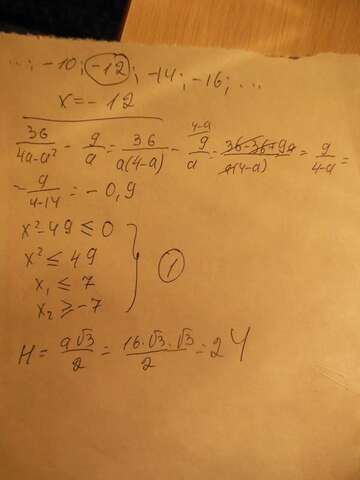 ...; -10; -12; -14; -16; ...
x = -12
36/(4a-a²) - 9/a = 36/(a(4-a)) - 9/a ^(4-a) = (36-36+9a)/(a(4-a)) = 9/(4-a) =
- 9/(4-14) = -0,9
x²-49 ≤ 0
x² ≤ 49
x₁ ≤ 7
x₂ ≥ -7
1
H = a√3/2 = 16·√3·√3/2 = 24